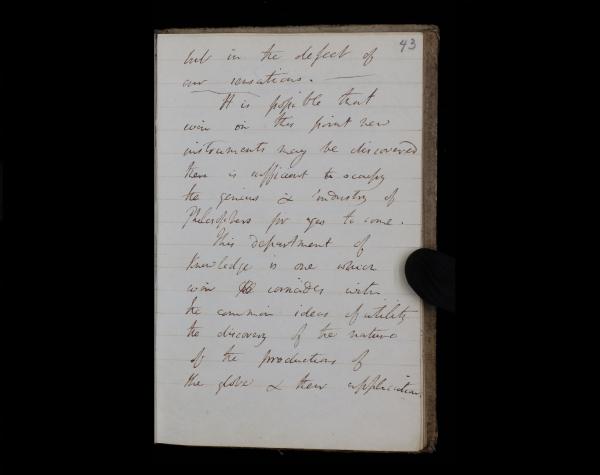 43
but in the defect of
our sensations.
It is possible that
even on this point new
instruments may be discovered
there is sufficient to occupy
the genius & industry of
Philosophers for ages to come.
This department of
Knowledge is one which
even coincides with
the common ideas of utility
the discovery of the nature
of the productions of
the globe & their application